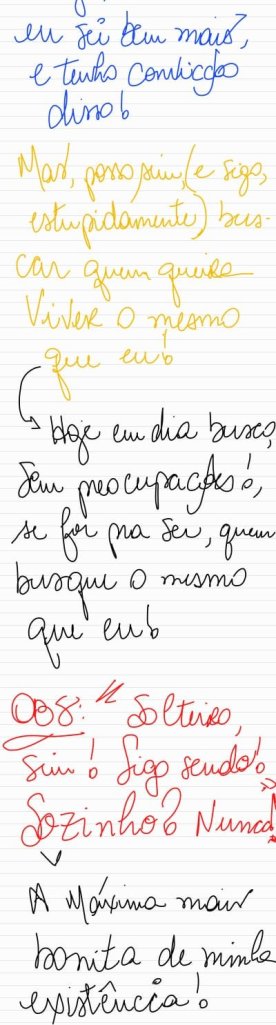 eu sei bem mais,
e tenho convicção
disso!
Mas, posso sim, (e sigo,
estupidamente) bus-
car quem queira
Viver o mesmo
que eu!
Hoje em dia busco,
sem preocupações!,
se for pra ser, quem
busque o mesmo
que eu!
OBS: "Solteiro,
sim! Sigo sendo!
Sozinho? Nunca!"
A Máxima mais
bonita de minha
existência!